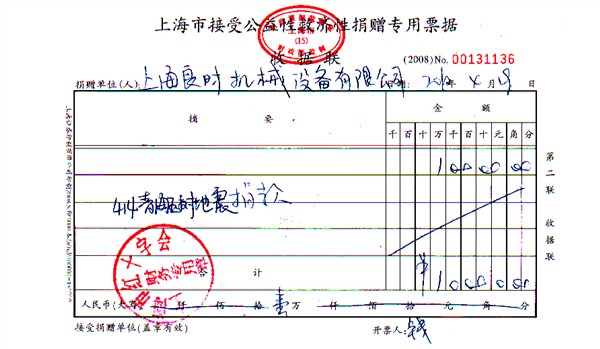 上海市接受公益性救济性捐赠专用票据
收据联
(2008) No. 00131136
捐赠单位(人): 上海良时机械设备有限公司 日期: 2010年4月19日
摘要 金额
千百十万千百十元角分
10000 00
414青海玉树地震捐款
合计 ¥10000 00
人民币(大写) 仟佰拾壹万仟佰拾元角分
接受捐赠单位(盖章有效) 开票人: 钱
第二联 收据联
红十字会
财务专用章